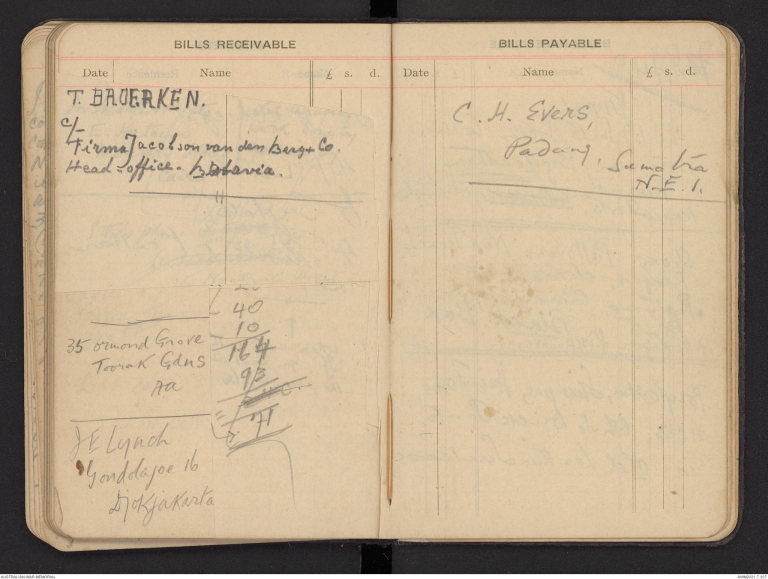 BILLS RECEIVABLE
Date Name £ s. d.
T. BROERKEN.
c/-
Firma Jacobson van den Berg & Co.
Head-office. Batavia.
40
10
164
93
71
35 Ormond Grove
Toorak Gdns
AA
J E Lynch
Gondolajoe 16
Djokjakarta
BILLS PAYABLE
Date Name £ s. d.
C. H. Evers,
Padang, Sumatra
N.E.I.
AUSTRALIAN WAR MEMORIAL